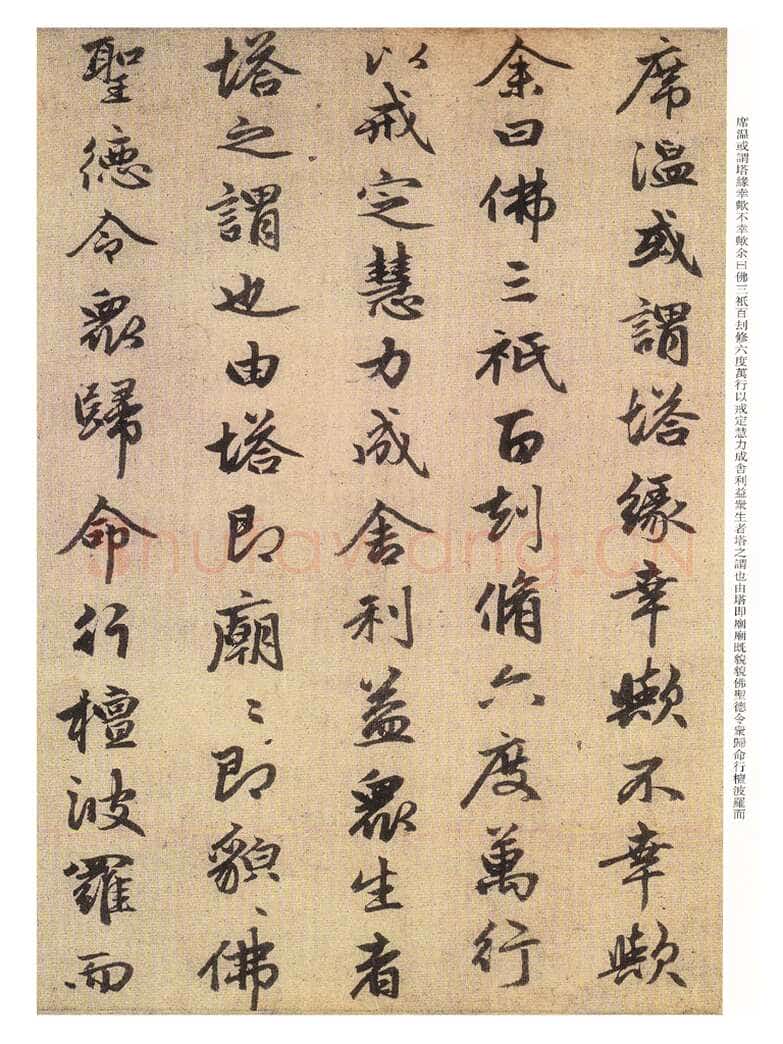 席温或謂塔緣幸歟不幸歟
余曰佛三祇百刧脩六度萬行
以戒定慧力成舍利益衆生者
塔之謂也由塔即廟〻即貌〻佛
聖德令衆歸命行檀波羅而
席温或謂塔緣幸歟不幸歟余曰佛三祇百刧修六度萬行以戒定慧力成舍利益衆生者塔之謂也由塔即廟廟既貌貌佛聖德令衆歸命行檀波羅而